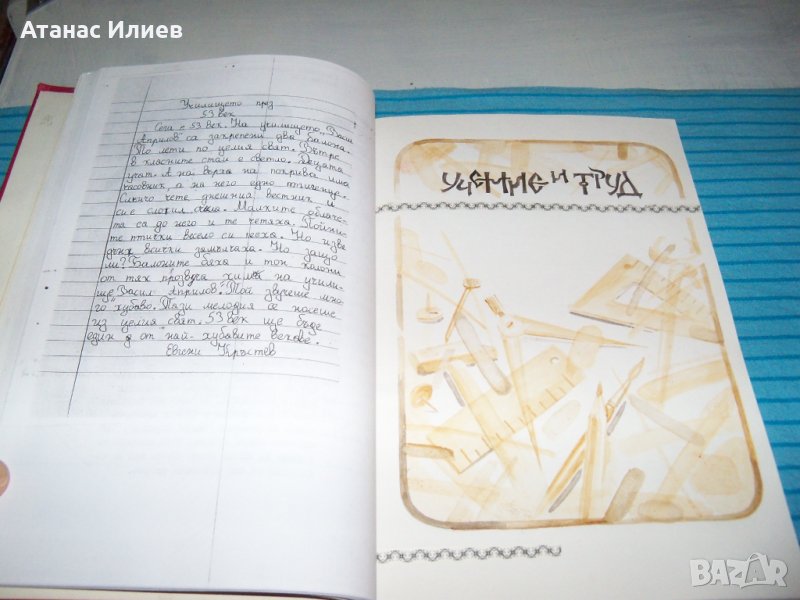 Атанас Илиев
Училището през
53 век
Сега е 53 век. На училището „Васил
Априлов" са закрепени два балона.
То лети по целия свят. Вътре
в класните стаи е светло. Децата
учат. А на върха на покрива има
часовник, а на него едно птиченце.
Сякаш чете днешния вестник и
си е сложил очила. Малките облаче-
та са до него и те четяха. Пойни-
те птички весело си пееха. Но изве
днъж всички замълчаха. Но защо
ли? Балоните бяха и тон колони
от тях прозвуча химн на учили-
ще „Васил Априлов". Той звучеше мно
го хубаво. Тази мелодия се носеше
из целия свят. 53 век ще бъде
един от най-хубавите векове.
Евгени Кръстев
УЧЕНИЕ И ТРУД
BAZAR